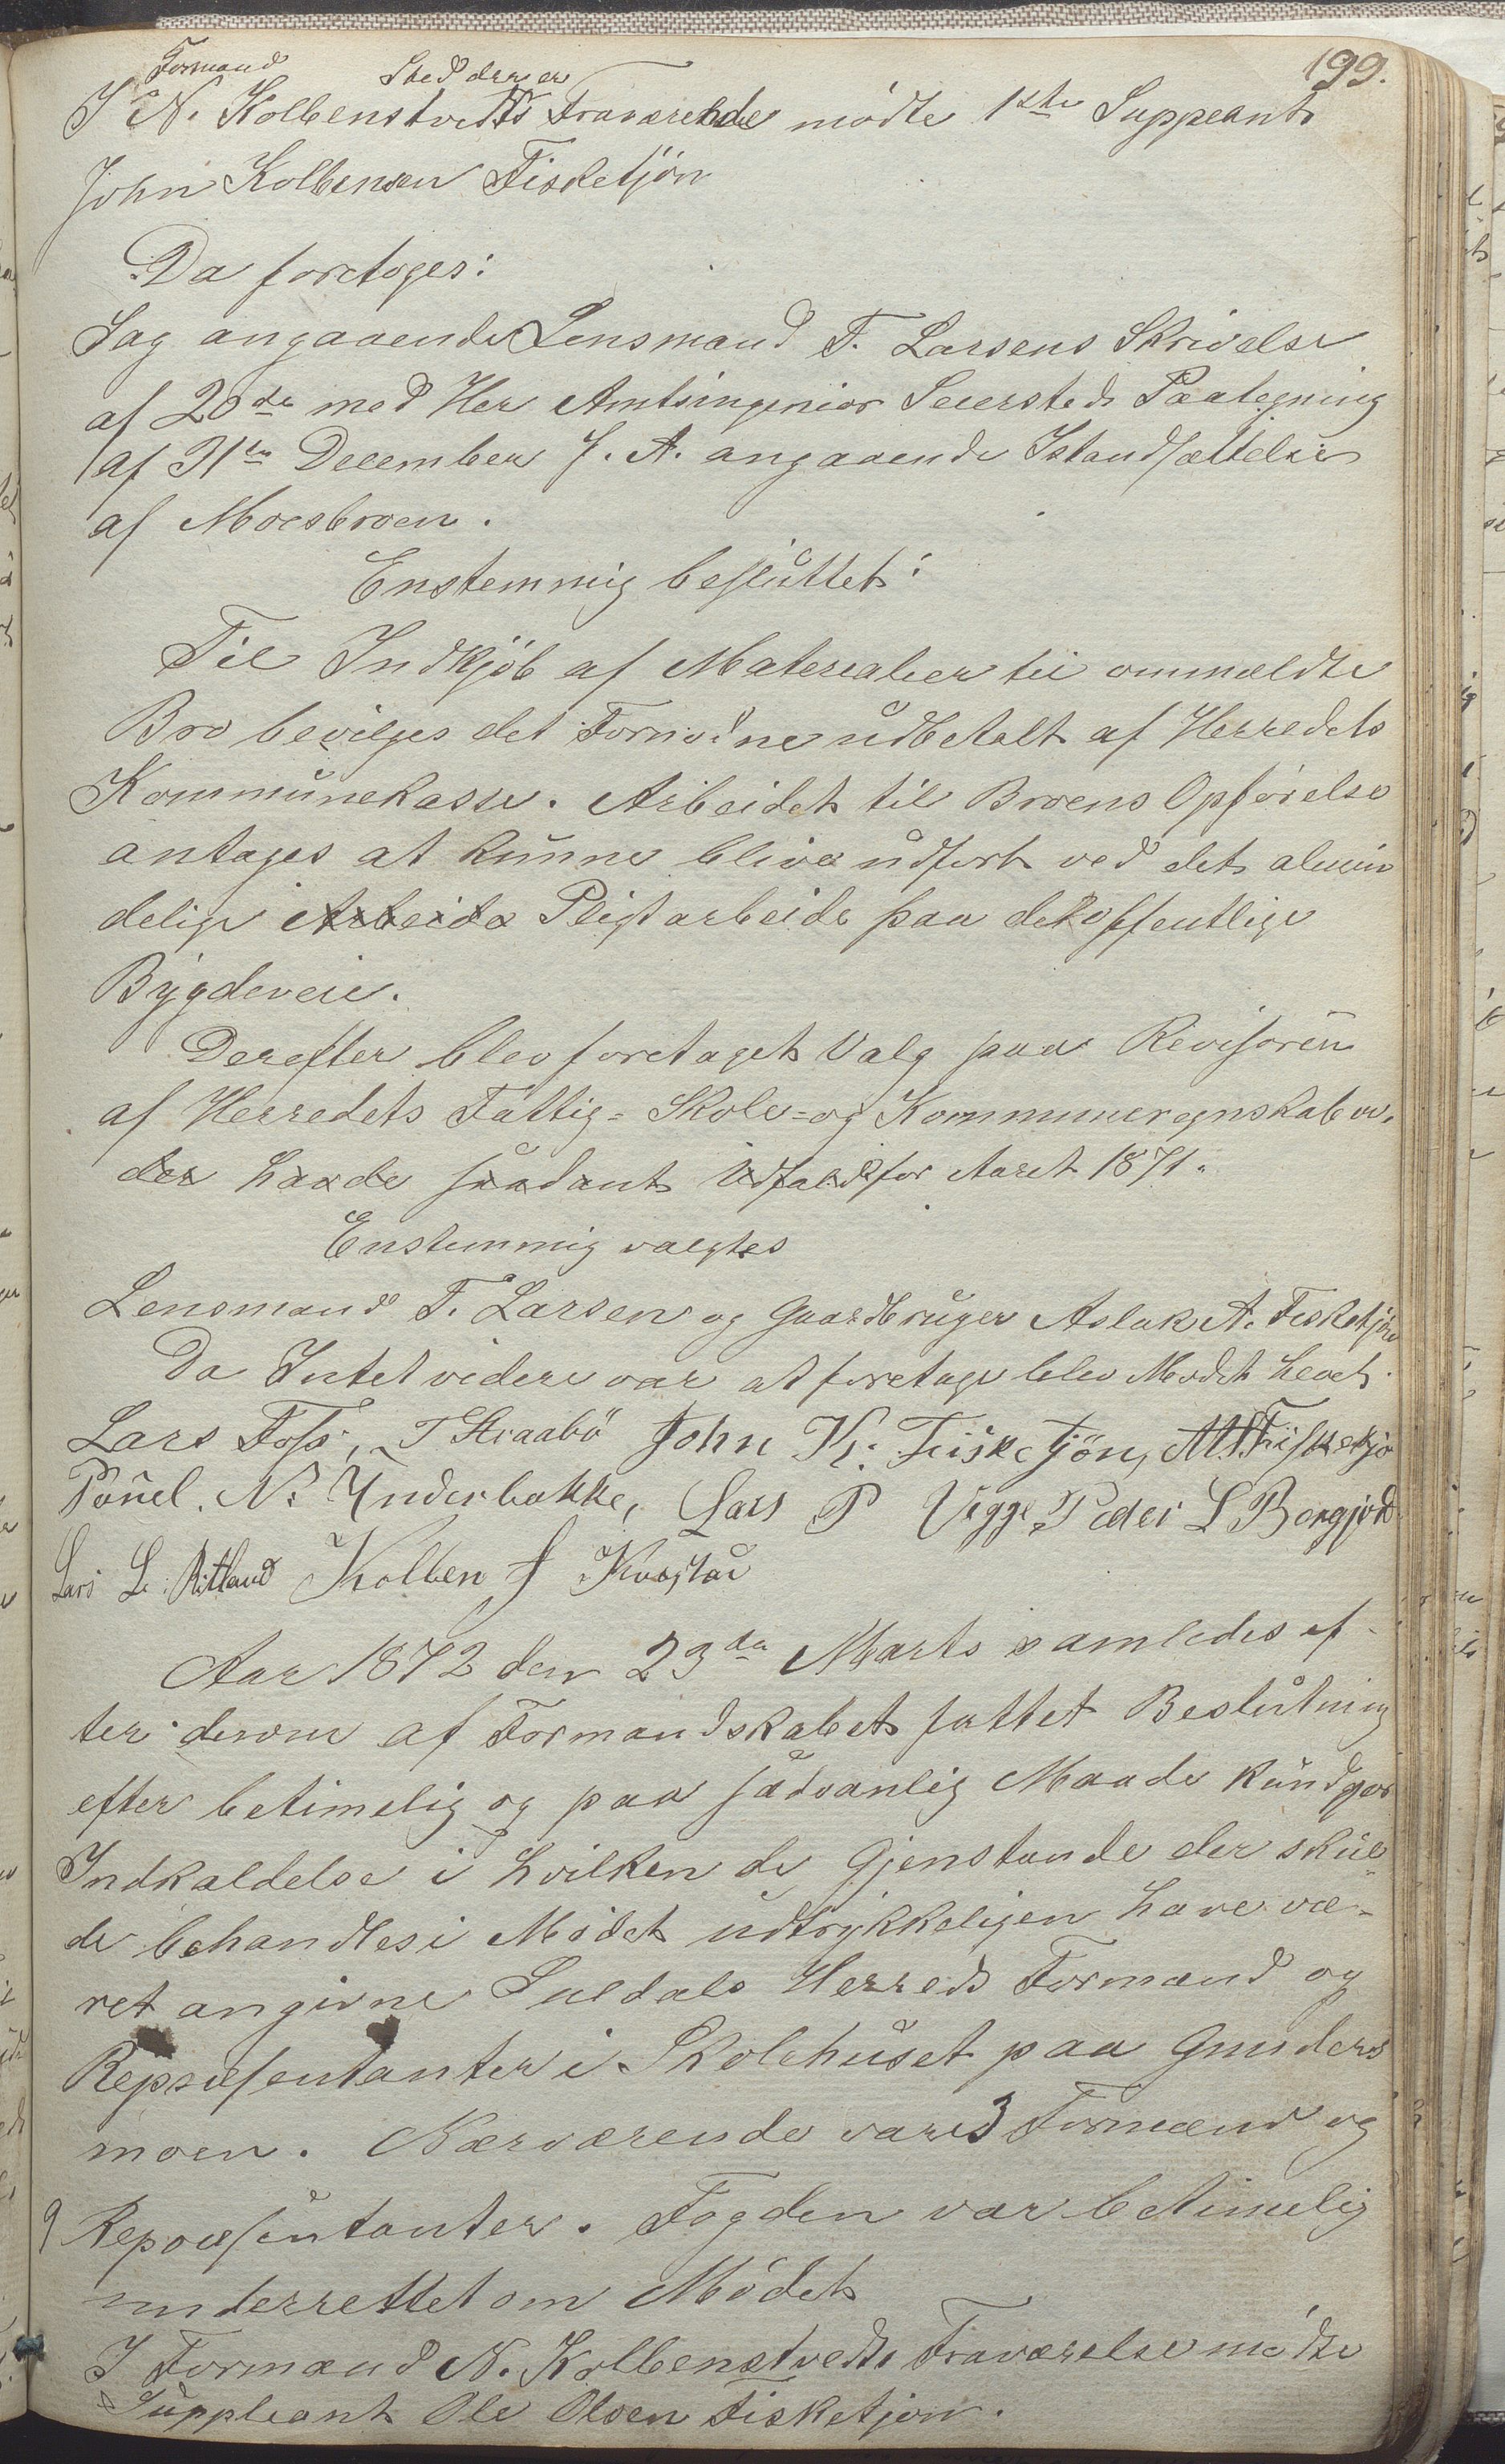 199.
Formand Sted der er
I N. Kolbenstvedts Fraværende mødte 1ste Suppeant
John Kolbensen Fisketjön
Da foretoges:
Sag angaaende Lensmand T. Larsens Skrivelse
af 20de med Her Amtsingeniør Seiersteds Paategning
af 31te December f. A. angaaende Istandsættelse
af Moesbroen.
Enstemmig besluttet:
Til Indkjöb af Materialier til ommeldte
Bro bevilges det Fornødne udbetalt af Herredets
Kommunekasse. Arbeidet til Broens Opførelse
antages at kunne blive udført ved det almin
delige Arbeide Pligtarbeide paa det offentlige
Bygdeveie.
Derefter blev foretaget Valg paa Revisorer
af Herredets Fattig- Skole- og Kommuneregnskaber,
der havde saadant Udfald for Aaret 1871.
Enstemmig valgtes
Lensmand T. Larsen og Gaardbruger Aslak A. Fisketjön
Da Intet videre var at foretage blev Mødet hævet.
Lars Foss, T Straabö John K. Fiisketjön, Fiisketjö
Poúel. N. Ÿnderbakke, Lars P Vegge, Peder L Bergjord
Lars L. Ritland Kolben J
Aar 1872 den 23de Marts samledes ef-
ter derom af Formandskabet fattet Beslutning
efter betimelig og paa sædvanlig Maade kundgjor
Indkaldelse i hvilken de Gjenstande der skul-
de behandles i Mødet udtrykkeligen have væ-
ret angivne Suldals Herreds Formænd og
Repræsentanter i Skolehuset paa Gunders
moen. Nærværende vare 3 Formænd og
9 Repræsentanter. Fogden var betimelig
underrettet om Mödet
I Formand N. Kolbenstvedts Fraværelse mødte
Suppleant Ole Olsen Fisketjön.